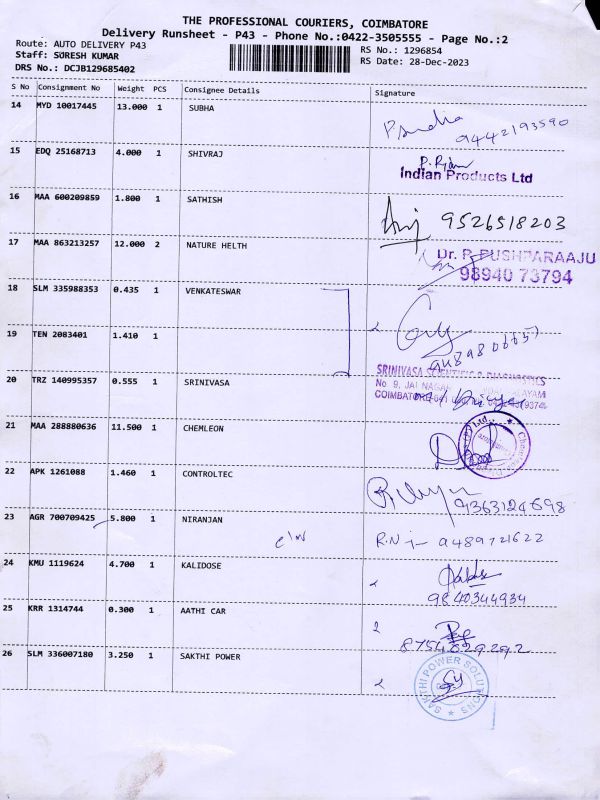 THE PROFESSIONAL COURIERS, COIMBATORE
Delivery Runsheet - P43 - Phone No.:0422-3505555 - Page No.:2
Route: AUTO DELIVERY P43
Staff: SURESH KUMAR
DRS No.: DCJB129685402
RS No.: 1296854
RS Date: 28-Dec-2023
S No Consignment No Weight PCS Consignee Details Signature
14 MYD 10017445 13.000 1 SUBHA
9442193590
15 EDQ 25168713 4.000 1 SHIVRAJ
Indian Products Ltd
16 MAA 600209859 1.800 1 SATHISH
9526518203
17 MAA 863213257 12.000 2 NATURE HELTH
Dr. P. PUSHPARAAJU
98940 73794
18 SLM 335988353 0.435 1 VENKATESWAR
19 TEN 2083401 1.410 1
20 TRZ 140995357 0.555 1 SRINIVASA
SRINIVASA SCIENTIFIC & DIAGNOSTICS
No. 9, JAI NAGAR
COIMBATORE
21 MAA 288880636 11.500 1 CHEMLEON
22 APK 1261088 1.460 1 CONTROLTEC
9363124698
23 AGR 700709425 5.800 1 NIRANJAN
R.N 9489721622
24 KMU 1119624 4.700 1 KALIDOSE
9840344934
25 KRR 1314744 0.300 1 AATHI CAR
8754829292
26 SLM 336007180 3.250 1 SAKTHI POWER
SAKTHI POWER SOLUTIONS